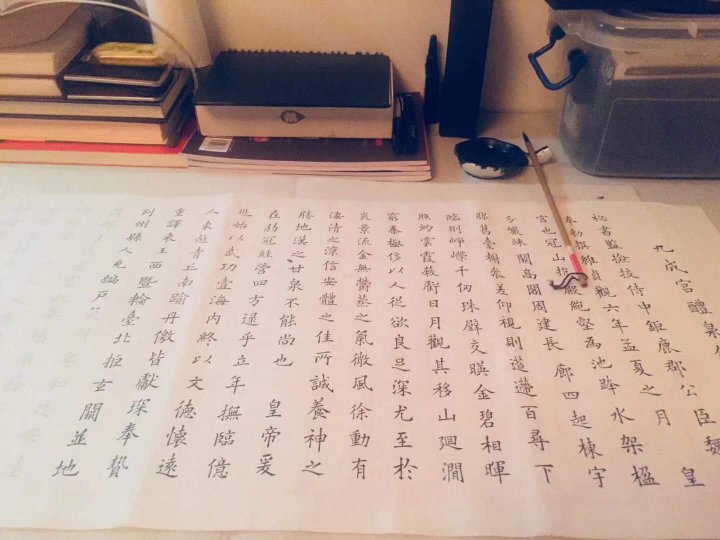 九成宮醴泉
秘書監檢挍侍中鉅鹿郡公臣魏
奉勑撰維貞觀六年孟夏之月 皇
宮也冠山抗殿絕壑為池跨水架楹
分巖竦闕高閣周建長廊四起棟宇
膠葛臺榭參差仰視則迢遰百尋下
臨則崢嶸千仞珠璧交暎金碧相暉
照灼雲霞蔽虧日月觀其移山迴澗
窮泰極侈以人從欲良足深尤至於
炎景流金無鬱蒸之氣微風徐動有
淒清之涼信安體之佳所誠養神之
勝地漢之甘泉不能尚也 皇帝爰
在弱冠經營四方逮乎立年撫臨億
兆始以武功壹海內終以文德懷遠
人東越青丘南踰丹儌皆獻琛奉贄
重譯來王西暨輪臺北拒玄闕並地
列州縣人充編戶